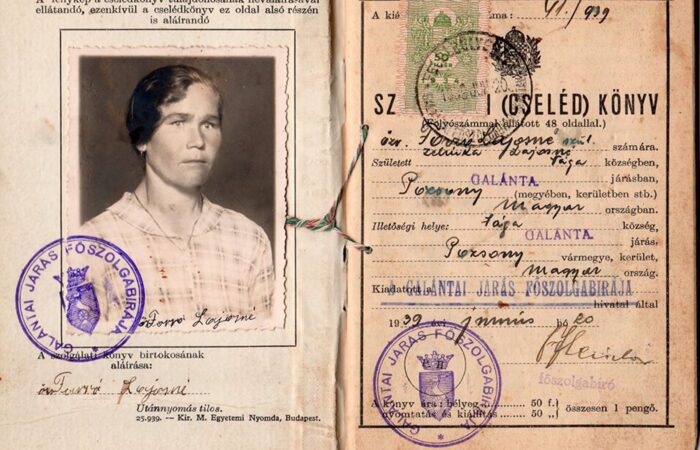 A fénykép a cselédkönyv tulajdonosának névaláírásával
ellátandó, ezenkívül a cselédkönyv ez oldal alsó részén
is aláírandó
öv Forró Lajosné
GALÁNTAI JÁRÁS FŐSZOLGABIRÁJA
A szolgálati könyv birtokosának
aláírása:
öv Forró Lajosné
Utánnyomás tilos.
25.939. — Kir. M. Egyetemi Nyomda, Budapest.
A kiá
ma: 41/939
SZ I (CSELÉD) KÖNYV
(Folyószámmal ellátott 48 oldallal.)
özv. Lajosné szül.
számára.
Született községben,
GALÁNTA járásban,
Pozsony (megyében, kerületben stb.)
Magyar országban.
Illetőségi helye: község,
GALÁNTA. járás,
Pozsony vármegye, kerület,
Magyar ország.
Kiadatott a GALÁNTAI JÁRÁS FŐSZOLGABIRÁJA
hivatal által
1939 évi június hó 20
főszolgabiró
GALÁNTAI JÁRÁS FŐSZOLGABIRÁJA
A könyv ára: bélyeg 50 f.
nyomtatás és kiállítás 50 „ összesen 1 pengő.